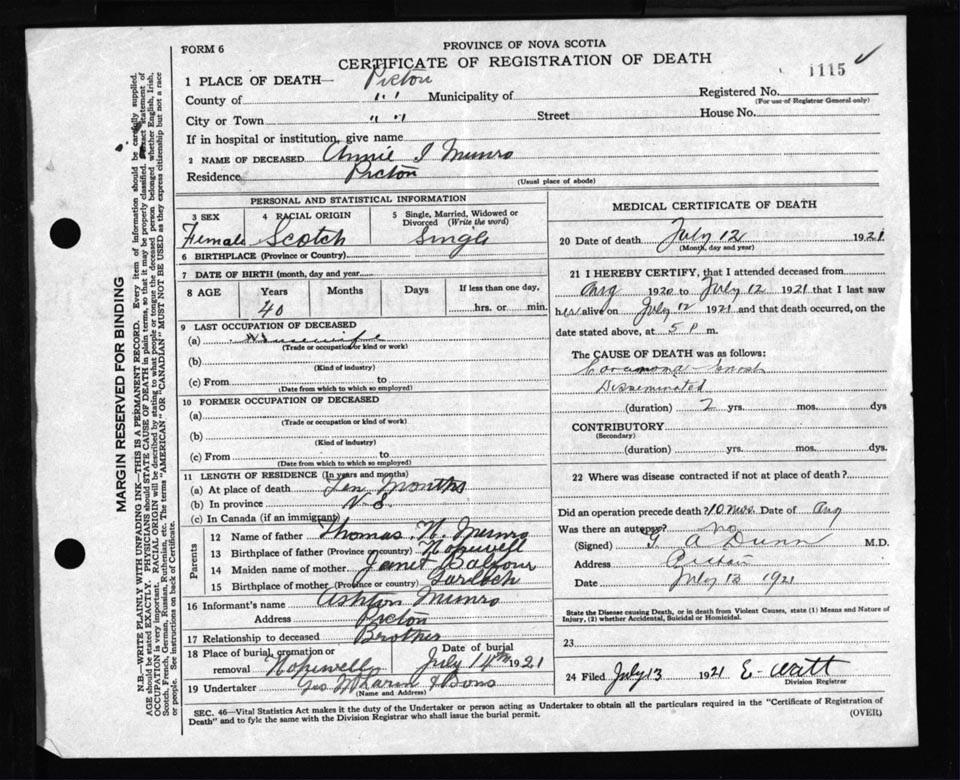 FORM 6
PROVINCE OF NOVA SCOTIA
CERTIFICATE OF REGISTRATION OF DEATH
1115 ✓
1 PLACE OF DEATH— Pictou
County of " " Municipality of
Registered No.
(For use of Registrar General only)
City or Town " " Street House No.
If in hospital or institution, give name
2 NAME OF DECEASED Annie I Munro
Residence Pictou
(Usual place of abode)
PERSONAL AND STATISTICAL INFORMATION
3 SEX
Female
4 RACIAL ORIGIN
Scotch
5 Single, Married, Widowed or Divorced (Write the word)
Single
6 BIRTHPLACE (Province or Country)
7 DATE OF BIRTH (month, day and year)
8 AGE Years Months Days If less than one day,
40 hrs. or min.
9 LAST OCCUPATION OF DECEASED
(a) Housewife
(Trade or occupation or kind or work)
(b)
(Kind of industry)
(c) From to
(Date from which to which so employed)
10 FORMER OCCUPATION OF DECEASED
(a)
(Trade or occupation or kind of work)
(b)
(Kind of industry)
(c) From to
(Date from which to which so employed)
11 LENGTH OF RESIDENCE (In years and months)
(a) At place of death Ten Months
(b) In province N S.
(c) In Canada (if an immigrant)
Parents
12 Name of father Thomas N. Munro
13 Birthplace of father (Province or country) Hopewell
14 Maiden name of mother Janet Balfour
15 Birthplace of mother (Province or country) Garloch
16 Informant's name Ashton Munro
Address Pictou
17 Relationship to deceased Brother
18 Place of burial, cremation or removal Hopewell
Date of burial
July 14th 1921
19 Undertaker Geo & Sons
(Name and Address)
MEDICAL CERTIFICATE OF DEATH
20 Date of death July 12 1921
(Month, day and year)
21 I HEREBY CERTIFY, that I attended deceased from
Aug 1920 to July 12 1921 that I last saw
her alive on July 12 1921 and that death occurred, on the
date stated above, at 5 P m.
The CAUSE OF DEATH was as follows:
Disseminated
(duration) 2 yrs. mos. dys
CONTRIBUTORY
(Secondary)
(duration) yrs. mos. dys.
22 Where was disease contracted if not at place of death?
Did an operation precede death? 10 mos. Date of Aug
Was there an autopsy? no
(Signed) G A Dunn M.D.
Address Pictou
Date July 13 1921
State the Disease causing Death, or in death from Violent Causes, state (1) Means and Nature of Injury, (2) whether Accidental, Suicidal or Homicidal.
23
24 Filed July 13 1921 E. Watt
Division Registrar
SEC. 46—Vital Statistics Act makes it the duty of the Undertaker or person acting as Undertaker to obtain all the particulars required in the "Certificate of Registration of
Death" and to fyle the same with the Division Registrar who shall issue the burial permit.
(OVER)
MARGIN RESERVED FOR BINDING
N.B.—WRITE PLAINLY WITH UNFADING INK—THIS IS A PERMANENT RECORD. Every item of information should be carefully supplied.
AGE should be stated EXACTLY. PHYSICIANS should STATE CAUSE OF DEATH in plain terms, so that it may be properly classified. Exact statement of
OCCUPATION is very important. RACIAL ORIGIN will be described by stating to what people or tongue the deceased person belonged whether English, Irish,
Scotch, French, German, Russian, Ruthenian, etc. The terms "AMERICAN" OR "CANADIAN" MUST NOT BE USED as they express citizenship but not a race
or people. See instructions on back of Certificate.